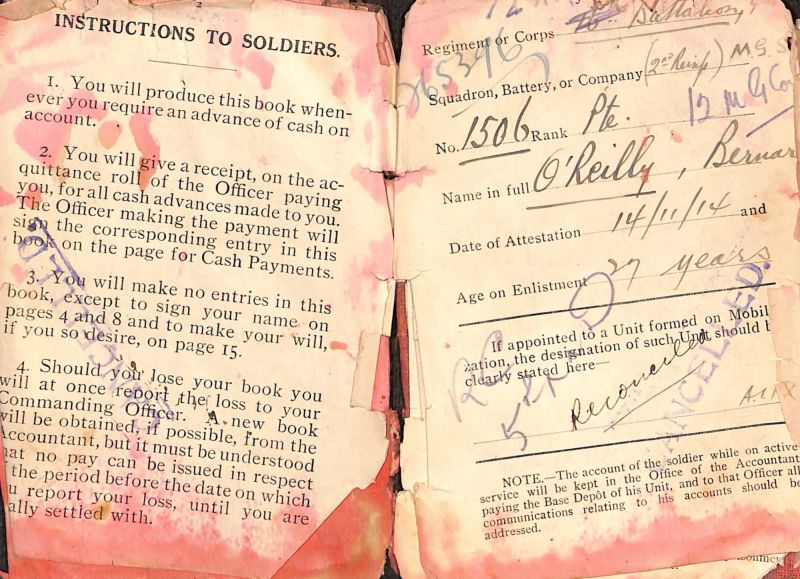 2
INSTRUCTIONS TO SOLDIERS.
1. You will produce this book when-
ever you require an advance of cash on
account.
2. You will give a receipt, on the ac-
quittance roll of the Officer paying
you, for all cash advances made to you.
The Officer making the payment will
sign the corresponding entry in this
book on the page for Cash Payments.
3. You will make no entries in this
book, except to sign your name on
pages 4 and 8 and to make your will,
if you so desire, on page 15.
4. Should you lose your book you
will at once report the loss to your
Commanding Officer. A new book
will be obtained, if possible, from the
Accountant, but it must be understood
at no pay can be issued in respect
the period before the date on which
u report your loss, until you are
ally settled with.
CANCELLED.
12
Regiment or Corps Battalion
265396
Squadron, Battery, or Company (2nd Reinf) M.G.S
12 M G Coy
No. 1506 Rank Pte.
Name in full O'Reilly, Bernar
Date of Attestation 14/11/14 and
Age on Enlistment 27 years
If appointed to a Unit formed on Mobil
zation, the designation of such Unit should b
clearly stated here—
RC
Reconciled
CANCELLED.
NOTE.—The account of the soldier while on active
service will be kept in the Office of the Accountant
paying the Base Depôt of his Unit, and to that Officer all
communications relating to his accounts should be
addressed.